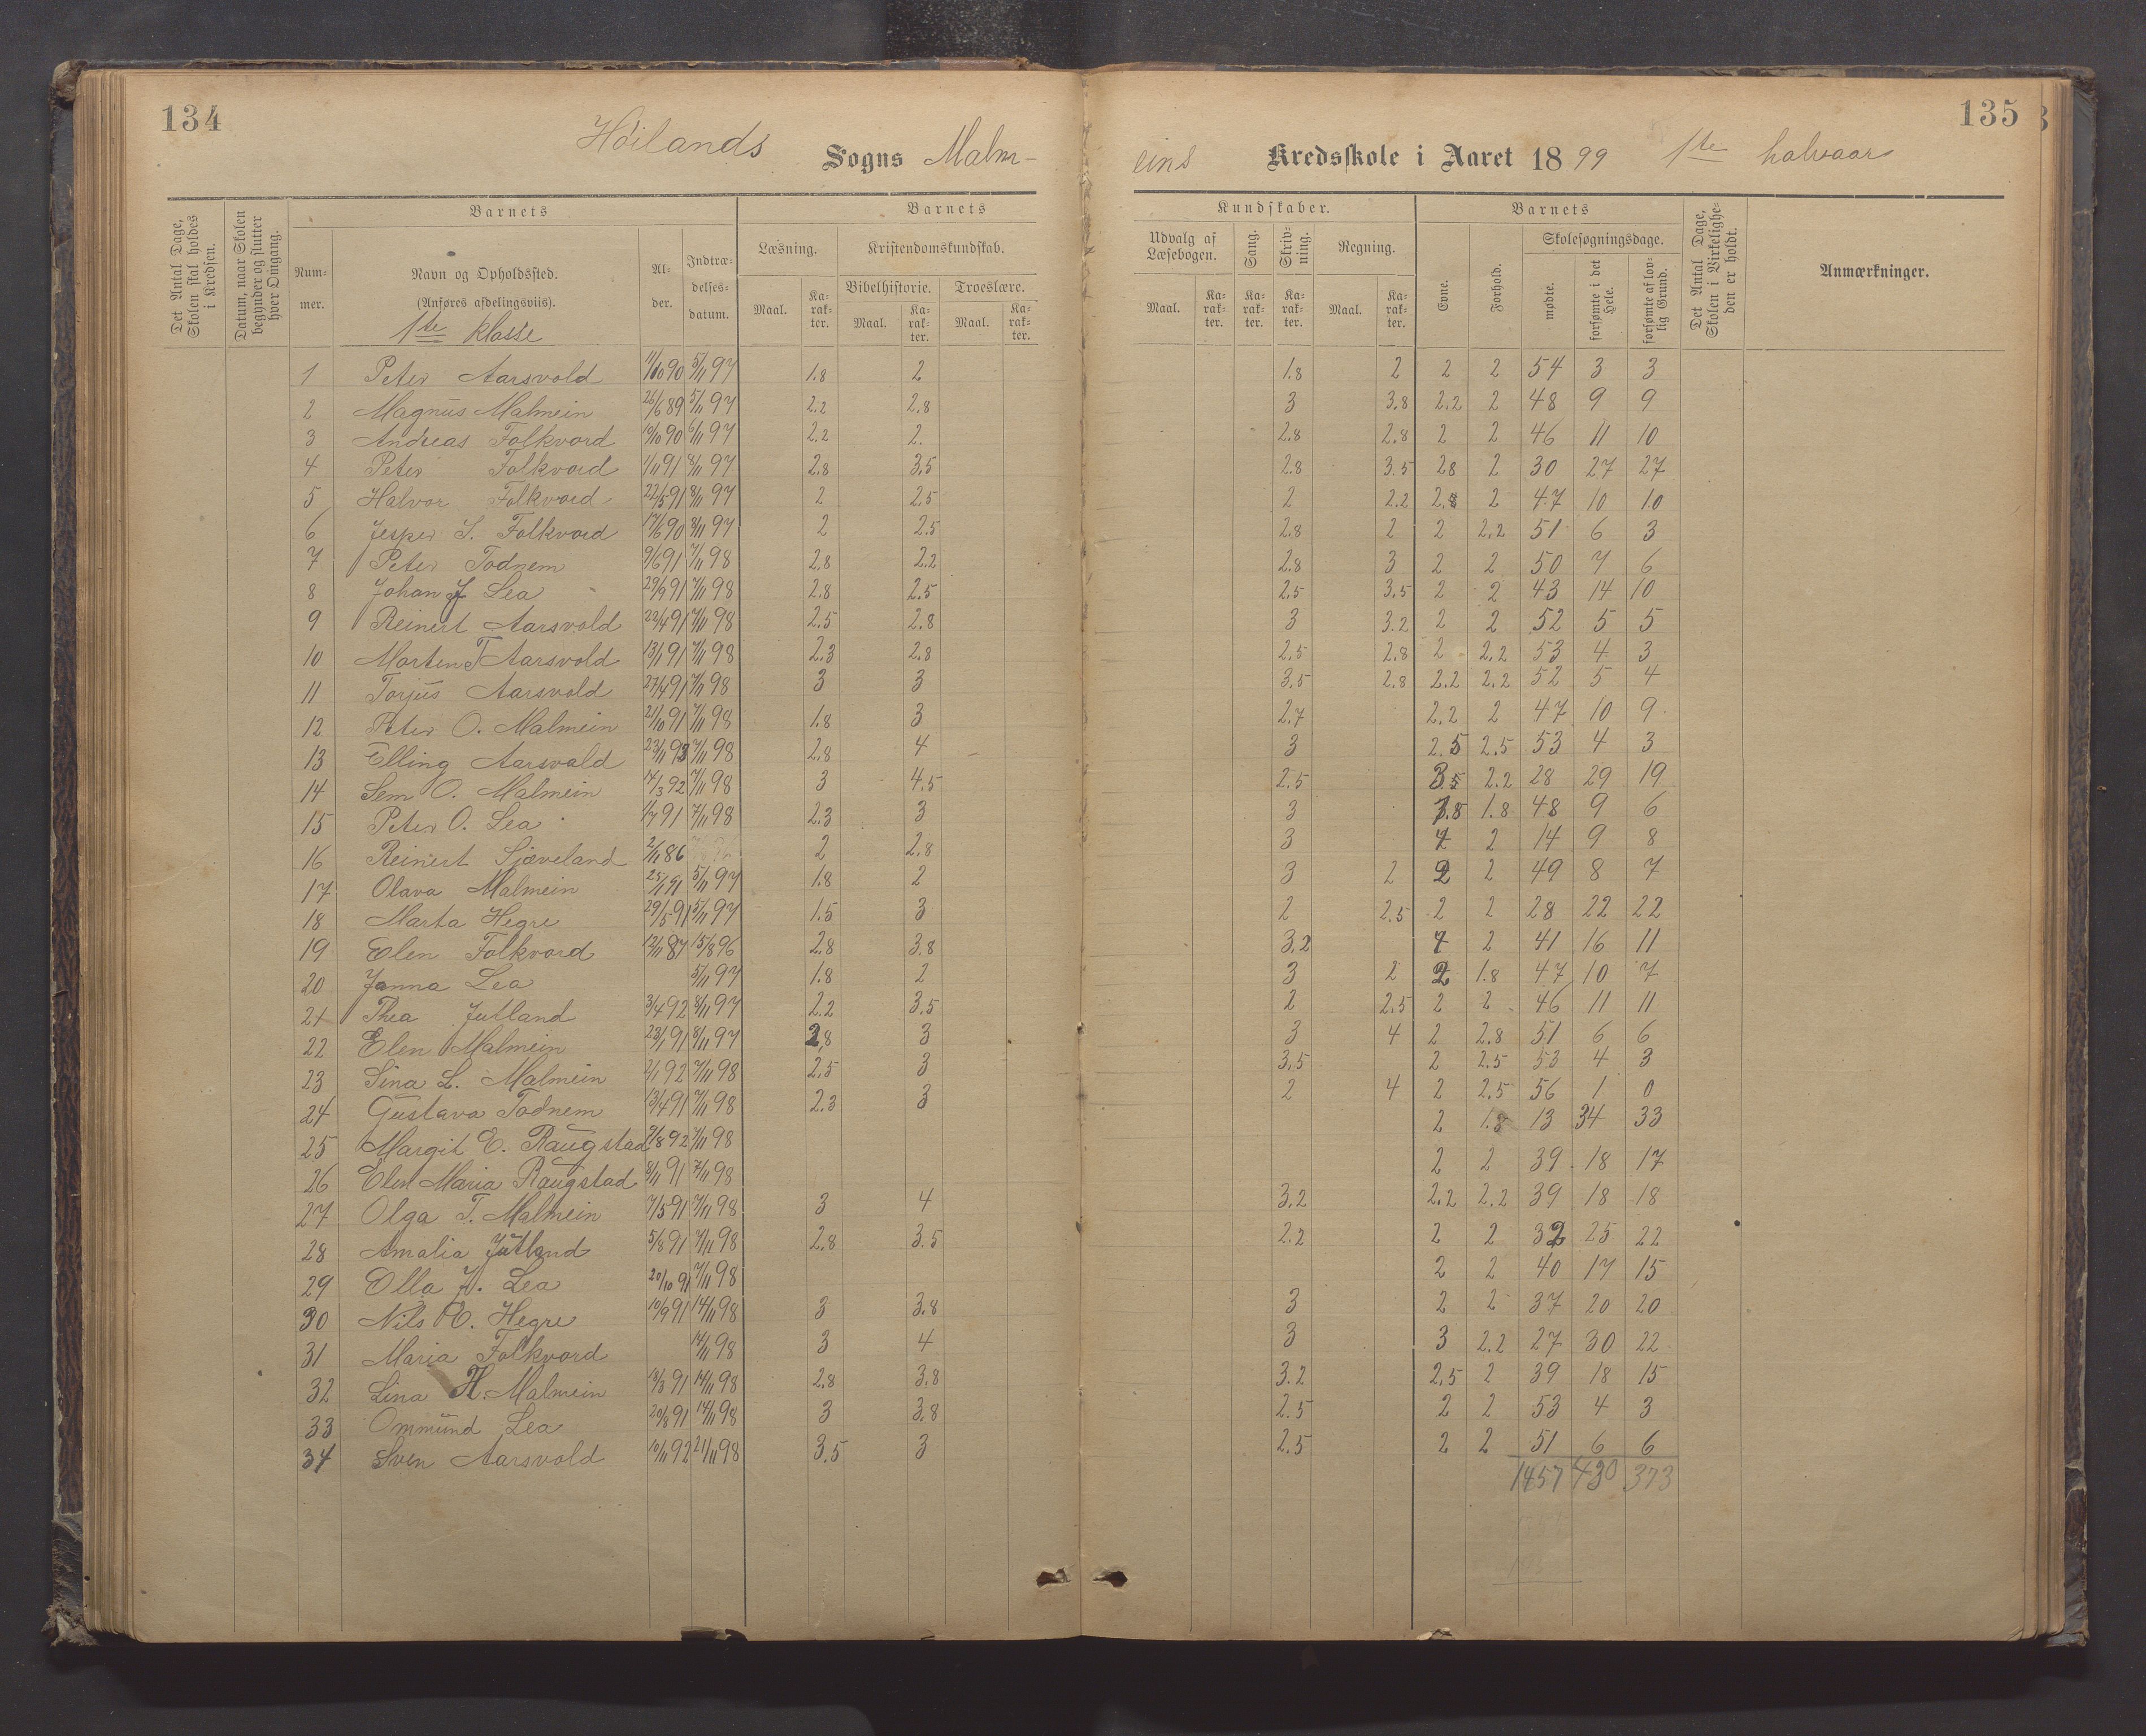 134
135
Höilands Sogns Malm-
eins Kredsskole i Aaret 1899 1ste halvaar
Det Antal Dage, Skolen skal holdes i Kredsen.
Datum, naar Skolen begynder og slutter hver Omgang.
Barnets
Num-
mer.
Navn og Opholdssted.
(Anføres afdelingsviis).
1ste klasse
Al-
der.
Indtræ-
delses-
datum.
Barnets
Læsning.
Maal.
Ka-
rak-
ter.
Kristendomskundskab.
Bibelhistorie.
Maal.
Ka-
rak-
ter.
Troeslære.
Maal.
Ka-
rak-
ter.
Kundskaber.
Udvalg af
Læsebogen.
Maal.
Ka-
rak-
ter.
Sang.
Ka-
rak-
ter.
Skriv-
ning.
Ka-
rak-
ter.
Regning.
Maal.
Ka-
rak-
ter.
Barnets
Evne.
Forhold.
Skolesøgningsdage.
mødte.
forsømte i det Hele.
forsømte af lov-
lig Grund.
Det Antal Dage, Skolen i Virkelighe-
den er holdt.
Anmærkninger.
1 Peter Aarsvold 11/10 90 5/11 97 1.8 2 1.8 2 2 2 54 3 3
2 Magnus Malmein 26/6 89 5/11 97 2.2 2.8 3 3.8 2.2 2 48 9 9
3 Andreas Folkvord 10/10 90 6/11 97 2.2 2. 2.8 2.8 2 2 46 11 10
4 Peter Folkvord 1/11 91 8/11 97 2.8 3.5 2.8 3.5 2.8 2 30 27 27
5 Halvor Folkvord 22/5 91 8/11 97 2 2.5 2 2.2 2.8 2 47 10 10
6 Jesper S. Folkvord 17/6 90 8/11 97 2 2.5 2.8 2 2 2.2 51 6 3
7 Peter Todnem 9/6 91 7/11 98 2.8 2.2 2.8 3 2 2 50 7 6
8 Johan J Lea 29/9 91 7/11 98 2.8 2.5 2.5 3.5 2 2 43 14 10
9 Reinert Aarsvold 22/4 91 7/11 98 2.5 2.8 3 3.2 2 2 52 5 5
10 Morten T Aarsvold 13/1 91 7/11 98 2.3 2.8 2.5 2.8 2 2.2 53 4 3
11 Torjus Aarsvold 27/4 91 7/11 98 3 3 3.5 2.8 2.2 2.2 52 5 4
12 Peter O. Malmein 21/10 91 7/11 98 1.8 3 2.7 2.2 2 47 10 9
13 Elling Aarsvold 23/11 93 7/11 98 2.8 4 3 2.5 2.5 53 4 3
14 Sem O. Malmein 14/3 92 7/11 98 3 4.5 2.5 3.5 2.2 28 29 19
15 Peter O. Lea 91 7/11 98 2.3 3 3 1.8 1.8 48 9 6
16 Reinert Sjæveland 2/11 86 2 2.8 3 4 2 14 9 8
17 Olava Malmein 25/1 91 5/11 97 1.8 2 3 2 2 2 49 8 7
18 Marta Hegre 29/5 91 5/11 97 1.5 3 2 2.5 2 2 28 22 22
19 Elen Folkvord 12/11 87 15/8 96 2.8 3.8 3.2 4 2 41 16 11
20 Janna Lea 5/11 97 1.8 2 3 2 2 1.8 47 10 7
21 Thea Jutland 3/4 92 8/11 97 2.2 3.5 2 2.5 2 2 46 11 11
22 Elen Malmein 23/1 91 8/11 97 2.8 3 3 4 2 2.8 51 6 6
23 Sina L. Malmein 2/1 92 7/11 98 2.5 3 3.5 2 2.5 53 4 3
24 Gustava Todnem 13/4 91 7/11 98 2.3 3 2 4 2 2.5 56 1 0
25 Margit E. Raugstad 9/8 92 7/11 98 2 1.8 13 34 33
26 Elen Maria Raugstad 8/11 91 7/11 98 2 2 39 18 17
27 Olga T. Malmein 7/5 91 7/11 98 3 4 3.2 2.2 2.2 39 18 18
28 Amalia Jutland 5/8 91 7/11 98 2.8 3.5 2.2 2 2 32 25 22
29 Olla J. Lea 20/10 91 7/11 98 2 2 40 17 15
30 Nils E. Hegre 10/9 91 14/11 98 3 3.8 3 2 2 37 20 20
31 Maria Folkvord 14/11 98 3 4 3 3 2.2 27 30 22
32 Lina H. Malmein 18/3 91 14/11 98 2.8 3.8 3.2 2.5 2 39 18 15
33 Ommund Lea 20/8 91 14/11 98 3 3.8 2.5 2 2 53 4 3
34 Sven Aarsvold 10/11 92 21/11 98 3.5 3 2.5 2 2 51 6 6
1457 430 373